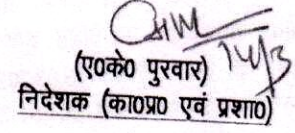 14/3
(ए०के० पुरवार)
निदेशक (का०प्र० एवं प्रशा०)